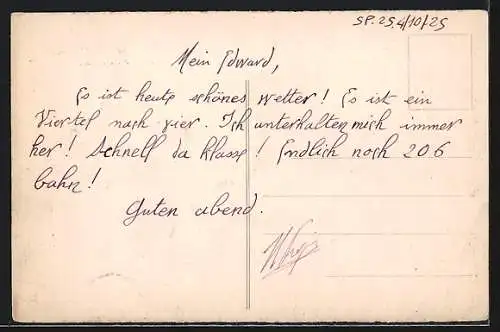 SP. 25.4/10/25
Mein Edward,
Es ist heute schönes wetter! Es ist ein
Viertel nach vier. Ich unterhalten mich immer
her! Schnell da klasse! Endlich noch 206
bahn!
Guten abend.